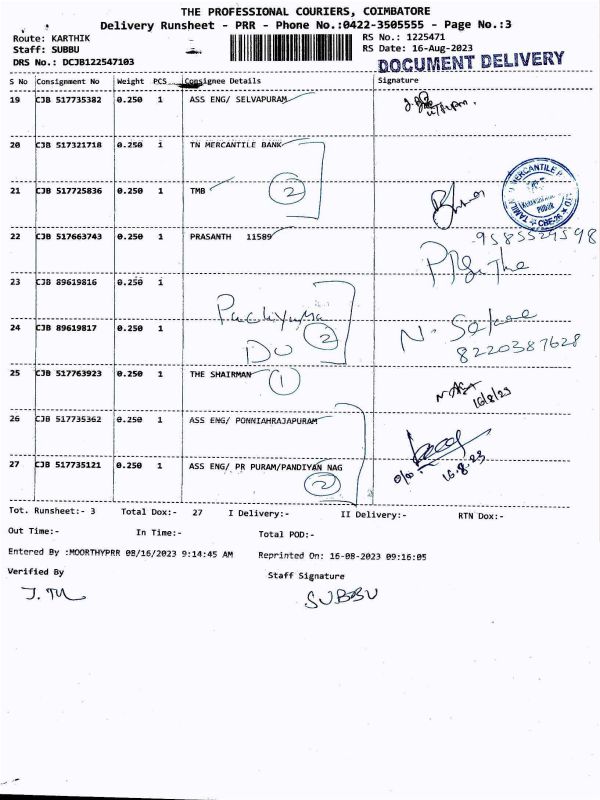 THE PROFESSIONAL COURIERS, COIMBATORE
Delivery Runsheet - PRR - Phone No.:0422-3505555 - Page No.:3
Route: KARTHIK RS No.: 1225471
Staff: SUBBU RS Date: 16-Aug-2023
DRS No.: DCJB122547103 DOCUMENT DELIVERY
S No Consignment No Weight PCS Consignee Details Signature
19 CJB 517735382 0.250 1 ASS ENG/ SELVAPURAM
20 CJB 517321718 0.250 1 TN MERCANTILE BANK
21 CJB 517725836 0.250 1 TMB 2
22 CJB 517663743 0.250 1 PRASANTH 11589 9585524598
23 CJB 89619816 0.250 1
24 CJB 89619817 0.250 1 DU 2 8220387628
25 CJB 517763923 0.250 1 THE SHAIRMAN 1 16/8/23
26 CJB 517735362 0.250 1 ASS ENG/ PONNIAHRAJAPURAM
27 CJB 517735121 0.250 1 ASS ENG/ PR PURAM/PANDIYAN NAG 2 16.8.23
Tot. Runsheet:- 3 Total Dox:- 27 I Delivery:- II Delivery:- RTN Dox:-
Out Time:- In Time:- Total POD:-
Entered By :MOORTHYPRR 08/16/2023 9:14:45 AM Reprinted On: 16-08-2023 09:16:05
Verified By Staff Signature
SUBBU